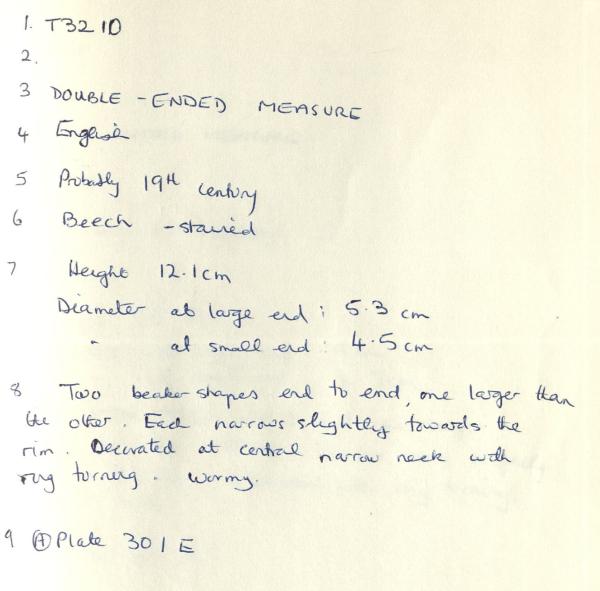 1. T321D
2.
3 DOUBLE-ENDED MEASURE
4 English
5 Probably 19th century
6 Beech - stained
7 Height 12.1cm
Diameter at large end: 5.3 cm
" at small end: 4.5cm
8 Two beaker shapes end to end, one larger than
the other. Each narrows slightly towards the
rim. Decorated at central narrow neck with
ring turning. Wormy.
9 (A) Plate 301 E